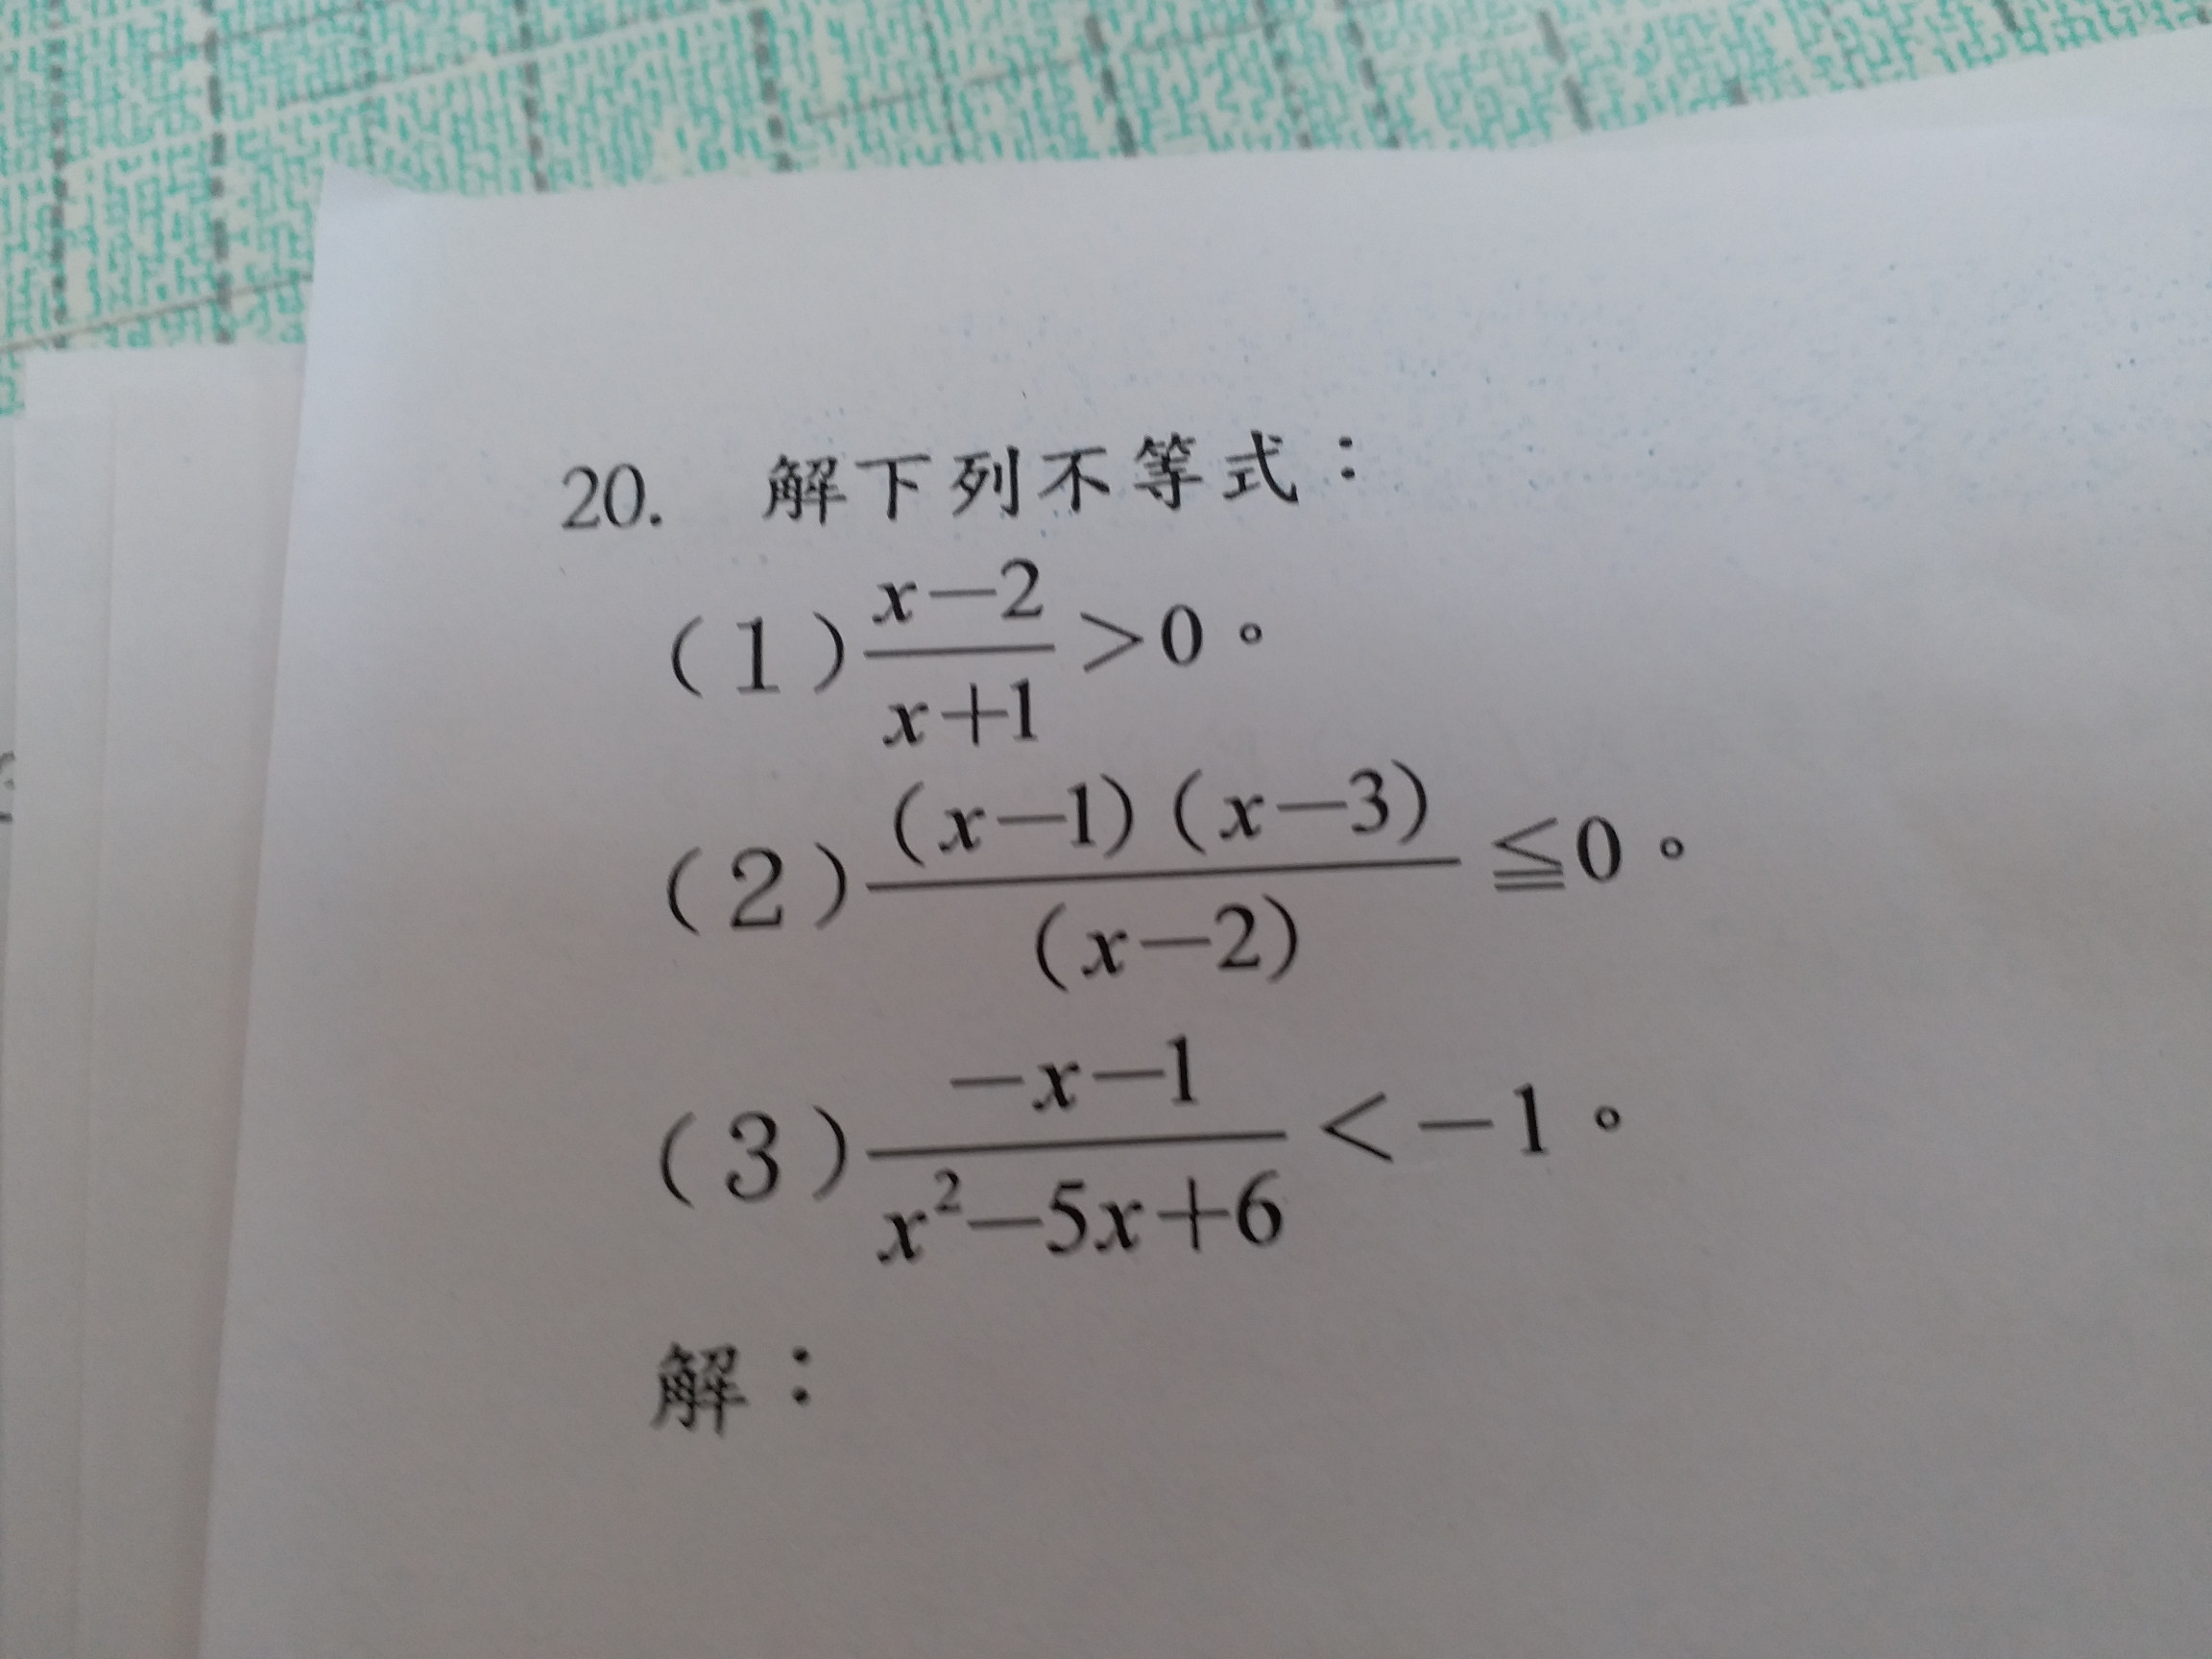 20. 解下列不等式：
(1) \frac{x-2}{x+1}>0。
(2) \frac{(x-1)(x-3)}{(x-2)}≦0。
(3) \frac{-x-1}{x^2-5x+6}<-1。
解：